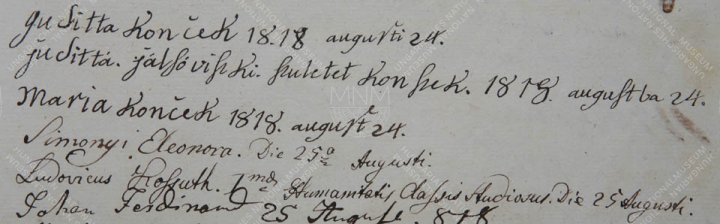 Juditta Konček 18.18 augusti 24.
juditta. jálsóviski. szuletet Konszek. 1818. augustba 24.
Maria Konček 1818. august 24.
Simonyi Eleonora. Die 25a Augusti.
Ludovicus Kossuth. 1mae Humanitatis Classis Auditorus. Die 25 Augusti.
Johan Ferdinand 25 August. 818